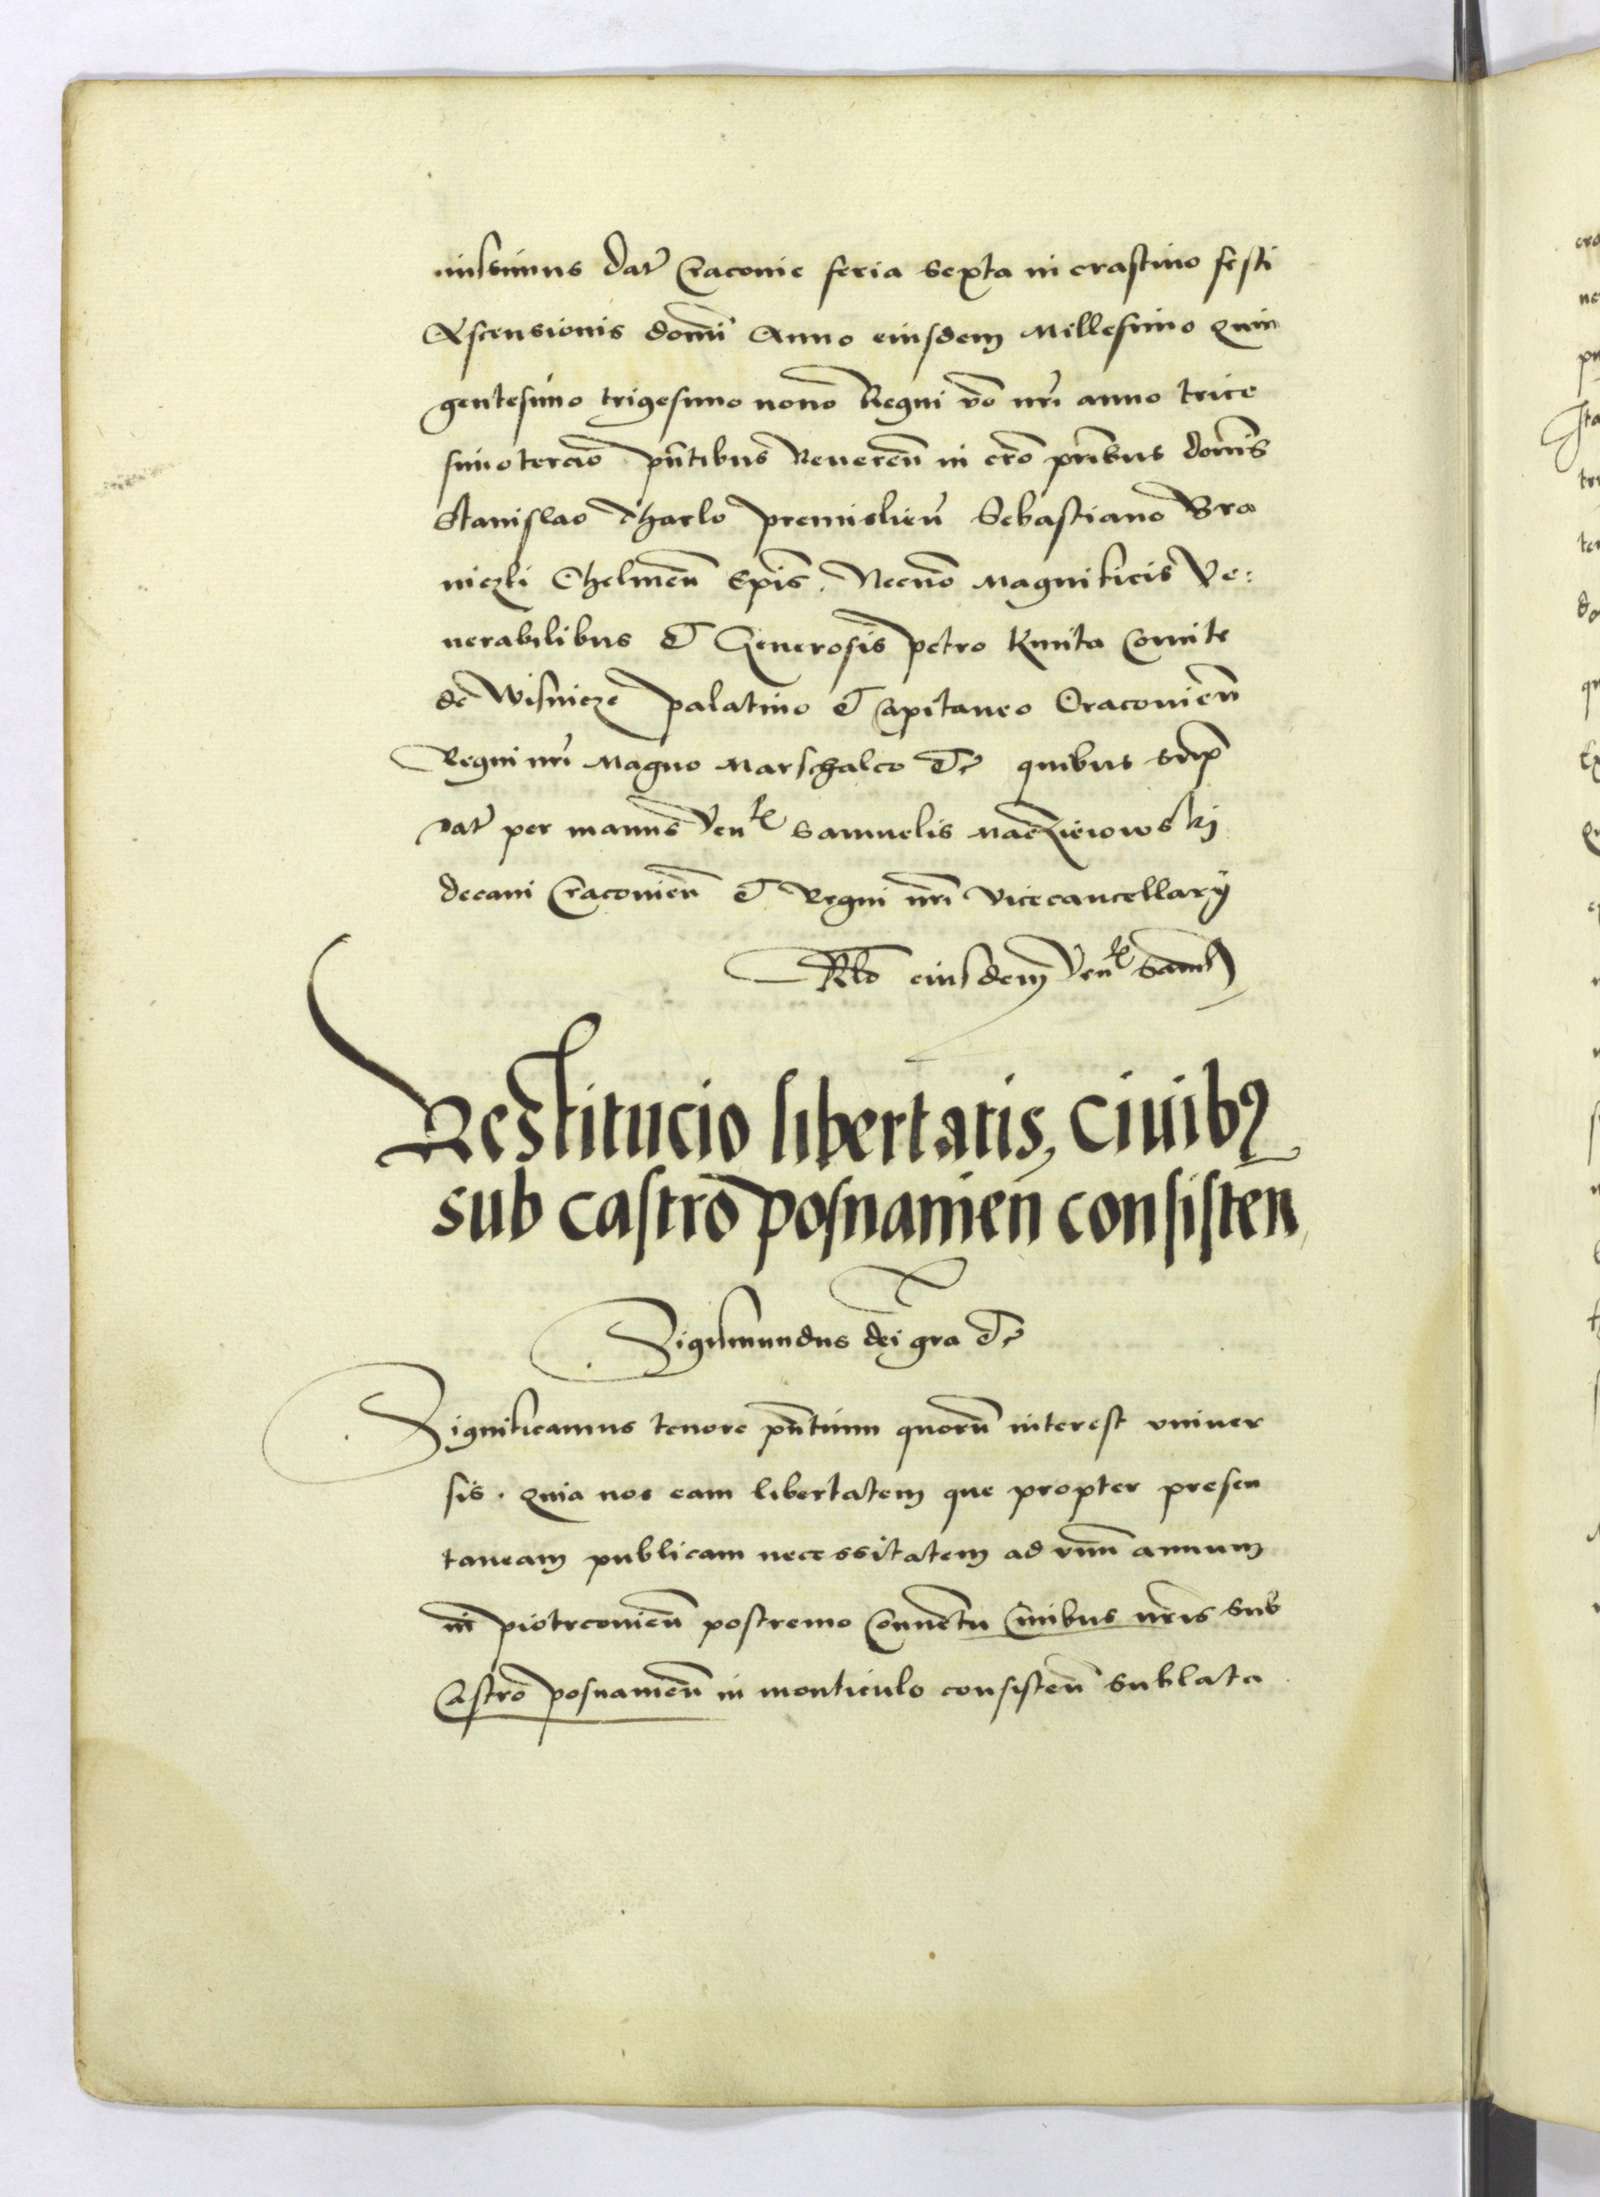 missimus Dat̄ Cracouie feria sexta in crastino festi
Ascensionis domi̅ Anno eiusdem Millesimo Quin
gentesimo trigesimo nono Regni v̅o nr̅i anno trice
simotercio pn̅tibus Reueren̅ in cr̅o pr̅ibus domi̅s
Stanislao Tharlo premislien̅ Sebastiano Bra
niczki Chelmen̅ Ep̅is. Necno̅ Magnificis Ve:
nerabilibus et Generosis petro Kmita Comite
de Wisnicze palatino et Capitaneo Cracouien̅
Regni nr̅i Magno Marschalco etc quibus sup̅
Dat̄ per manus Ven̅lis Samuelis Maczieiowskij
decani Cracouien̅ et Regni nr̅i Vicecancellarij
Rl̅o eiusdem Ven̅lis Sam̅lis
Restitucio libertatis, Ciuibꝰ
sub castro posnanien̅ consisten̅
Sigismundus dei gra̅ etc
Significamus tenore pn̅tium quoru̅ interest vniuer
sis. Quia nos eam libertatem que propter presen
taneam publicam necessitatem ad vnu̅ annum
in piotrcouien̅ postremo Conuentu Ciuibus nr̅is Sub
Castro posnanien̅ in monticulo consisten̅ sublata